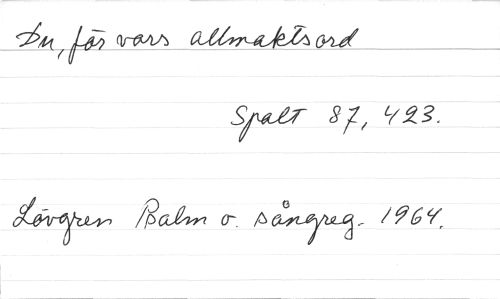 Du, för vars allmaktsord
Spalt 87, 423.
Lövgren Psalm o. sångreg. 1964.